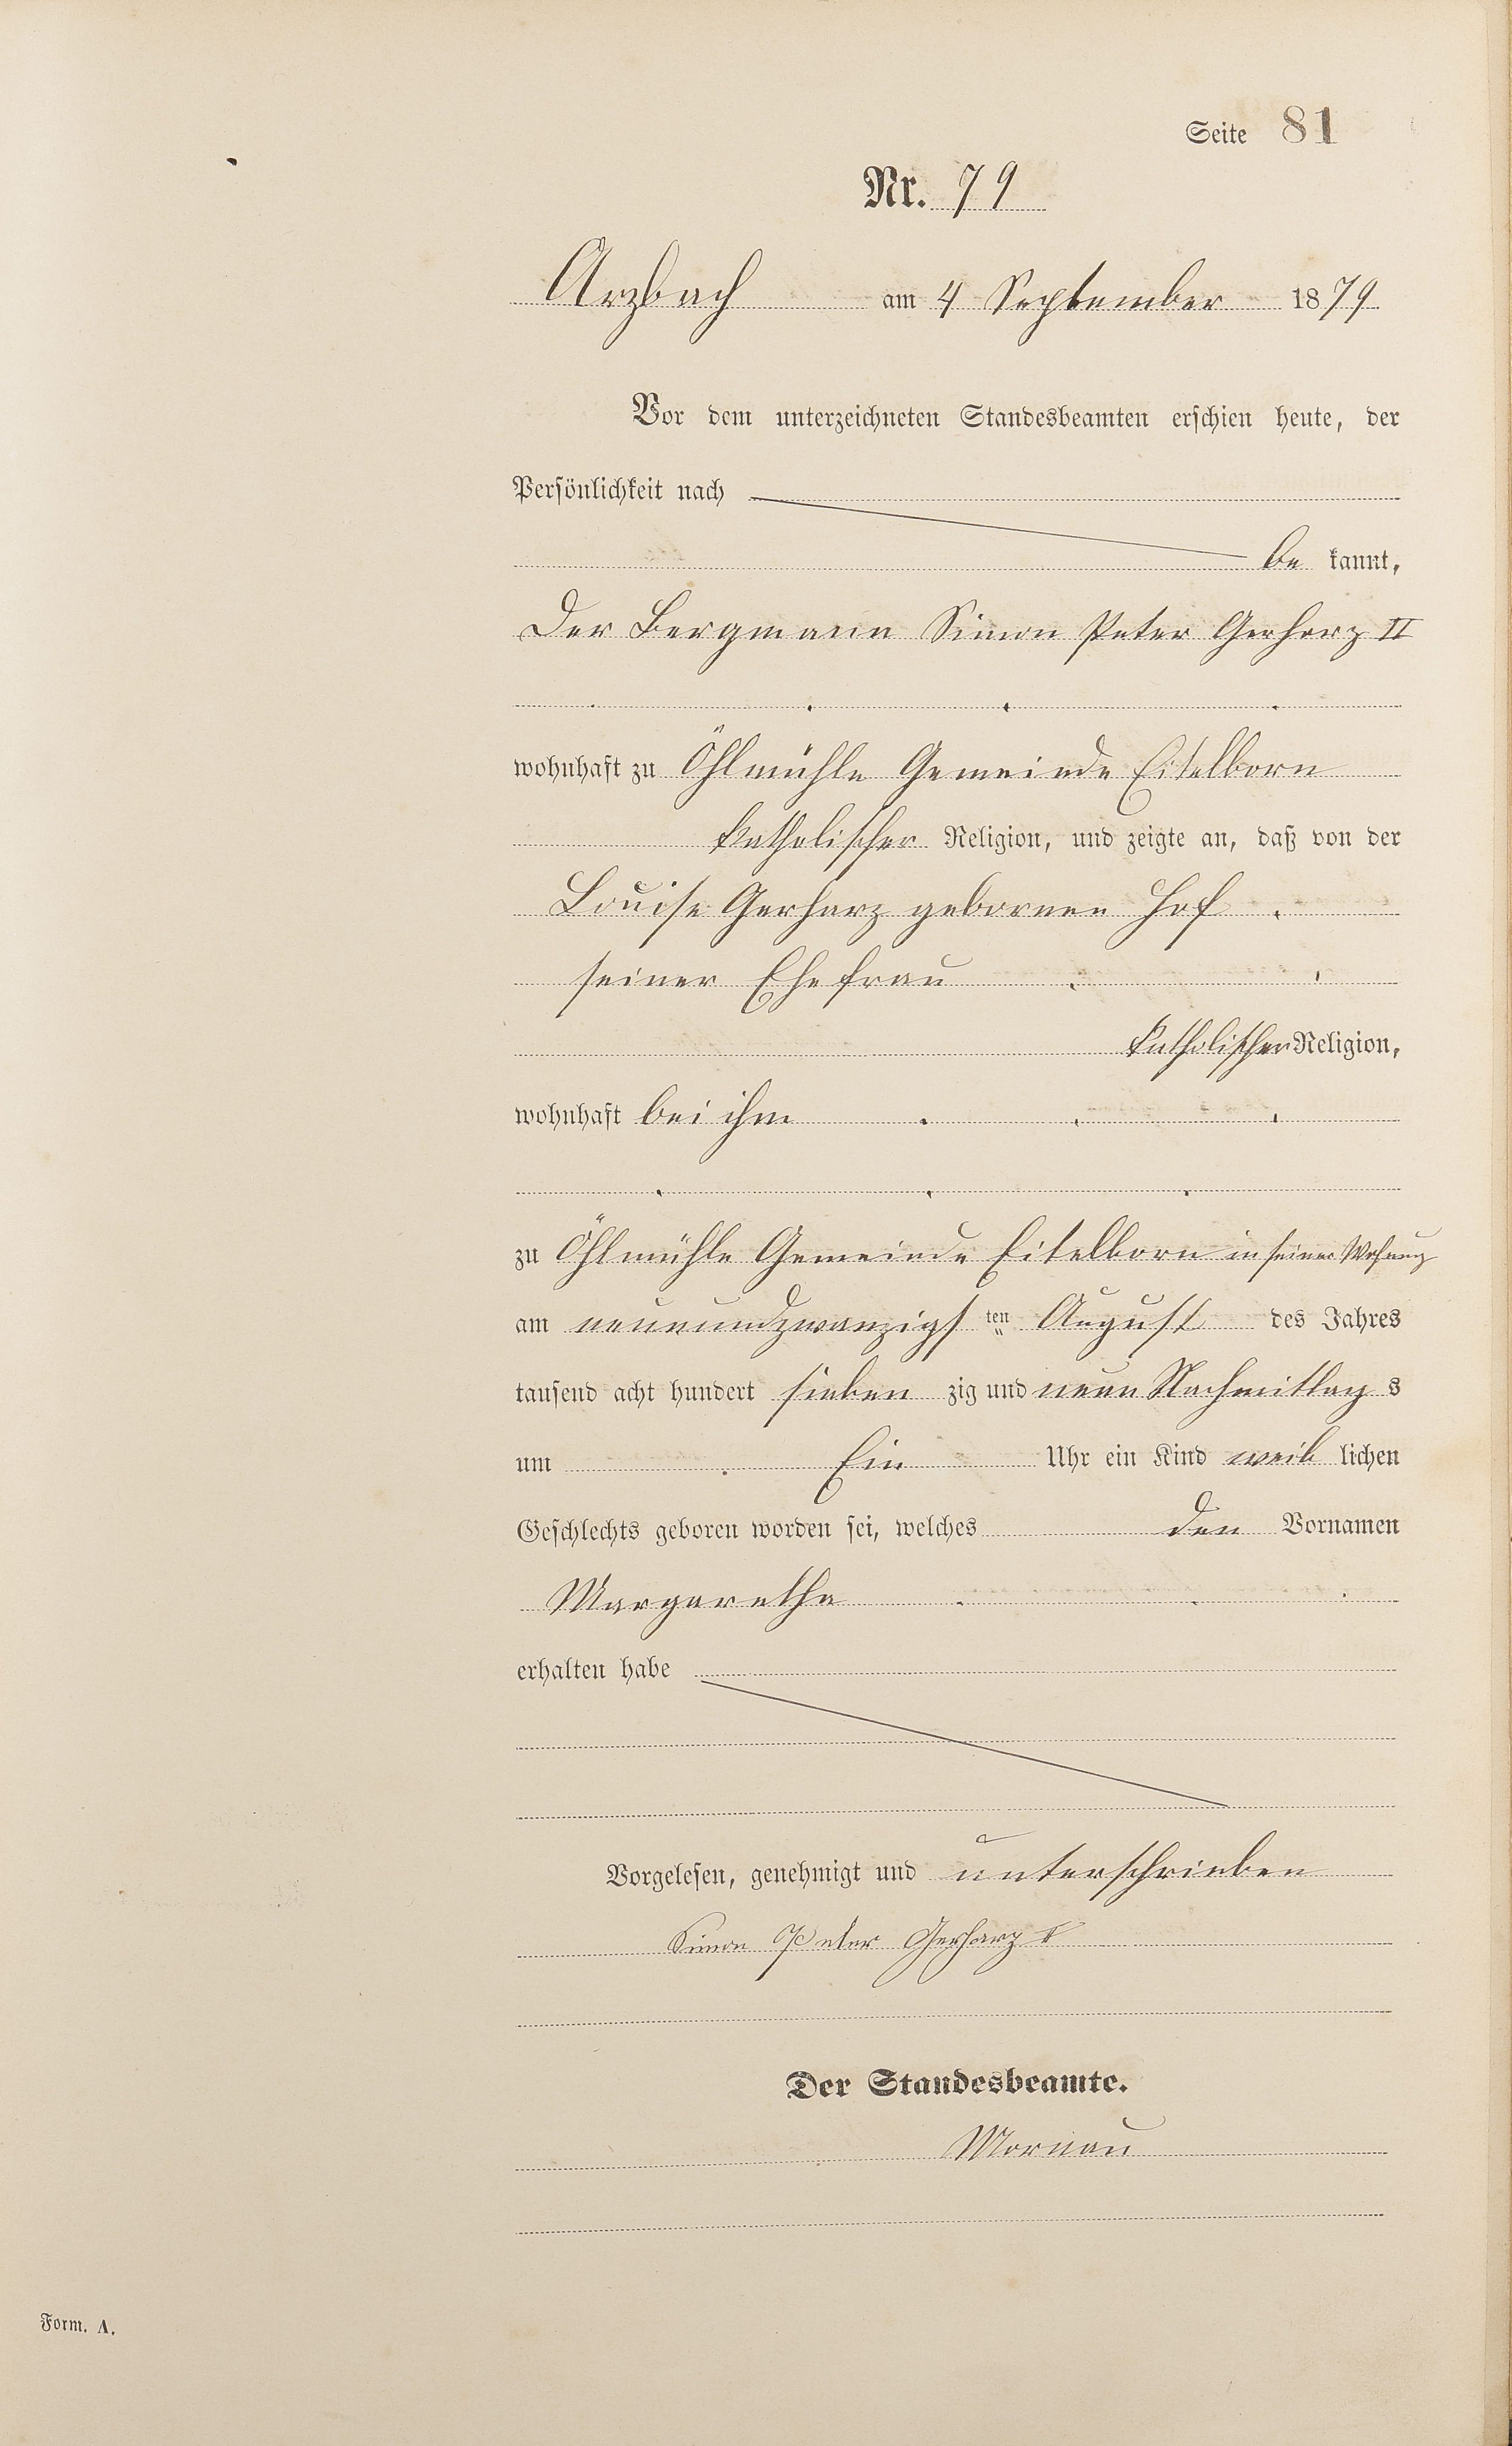 Seite 81
Nr. 79
Arzbach am 4 September 1879
Vor dem unterzeichneten Standesbeamten erschien heute, der
Persönlichkeit nach
be kannt,
Der Bergmann Simon Peter Gerharz II
wohnhaft zu Öhlmühle Gemeinde Eitelborn
katholischer Religion, und zeigte an, daß von der
Louise Gerharz gebornen Hof
seiner Ehefrau
katholischer Religion,
wohnhaft bei ihm
zu Öhlmühle Gemeinde Eitelborn in seiner Wohnung
am neunundzwanzigsten August des Jahres
tausend acht hundert sieben zig und neun Nachmittag s
um Ein Uhr ein Kind weib lichen
Geschlechts geboren worden sei, welches den Vornamen
Margaretha
erhalten habe
Vorgelesen, genehmigt und unterschrieben
Simon Peter Gerharz II
Der Standesbeamte.
Mornau
Form. A.